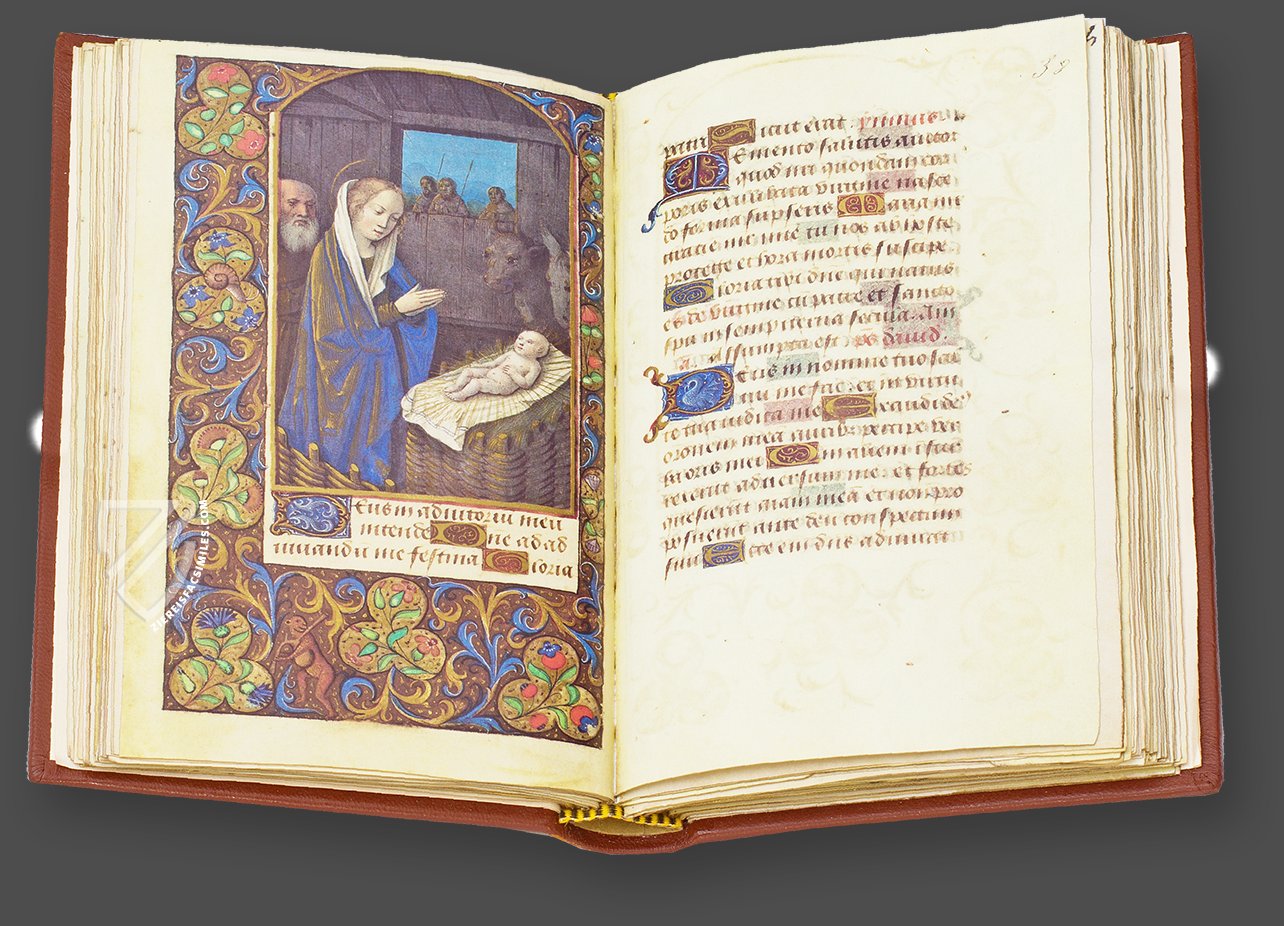 Eus in adiutoriu meu
intende Ne ad ad
iuuandu me festina Gloria
ZIEREISFACSIMILES.COM
58
sicut erat
Memento salutis auctor
quod nri quondam cor
poris ex illibata virgine nasce
do forma supseris Maria m
gratie mr mie tu nos ab hoste
protege et hora mortis suscipe
Gloria tibi dne qui natus
es de virgine cu patre et sancto
spu in sempiterna secula. Am
a. Assumpta est ps dauid.
Deus in nomine tuo sal
uu me fac et in virtu
te tua iudica me Deus exaudi
oronem mea auribz percipe ver
ba oris mei Qm alieni
aduersum me et fortes
quesierut aiam mea et non pro
posuerut ante deu conspectum
suu Ecce em dus adiuuat